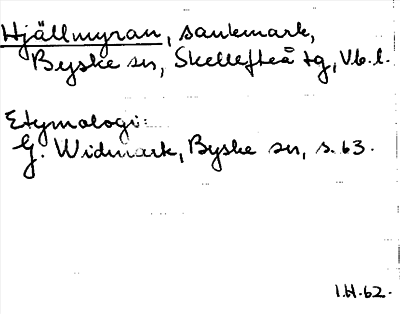 Hjällmyran, sankmark,
Byske sn, Skellefteå tg, Vb. l.
Etymologi:
G. Widmark, Byske sn, s. 63.
I.H.62.